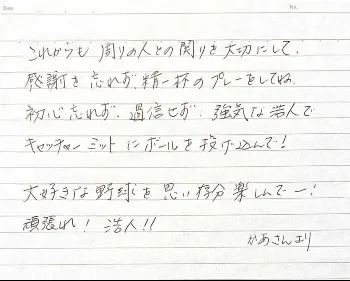 Date
No.
これからも 周りの人との関りを大切にして、
感謝を忘れず、精一杯のプレーをしてね
初心忘れず、過信せず、強気な浩人で
キャッチャーミットにボールを投げ込んで!
大好きな野球を思い存分楽しんでー!
頑張れ! 浩人!!
かあさんより